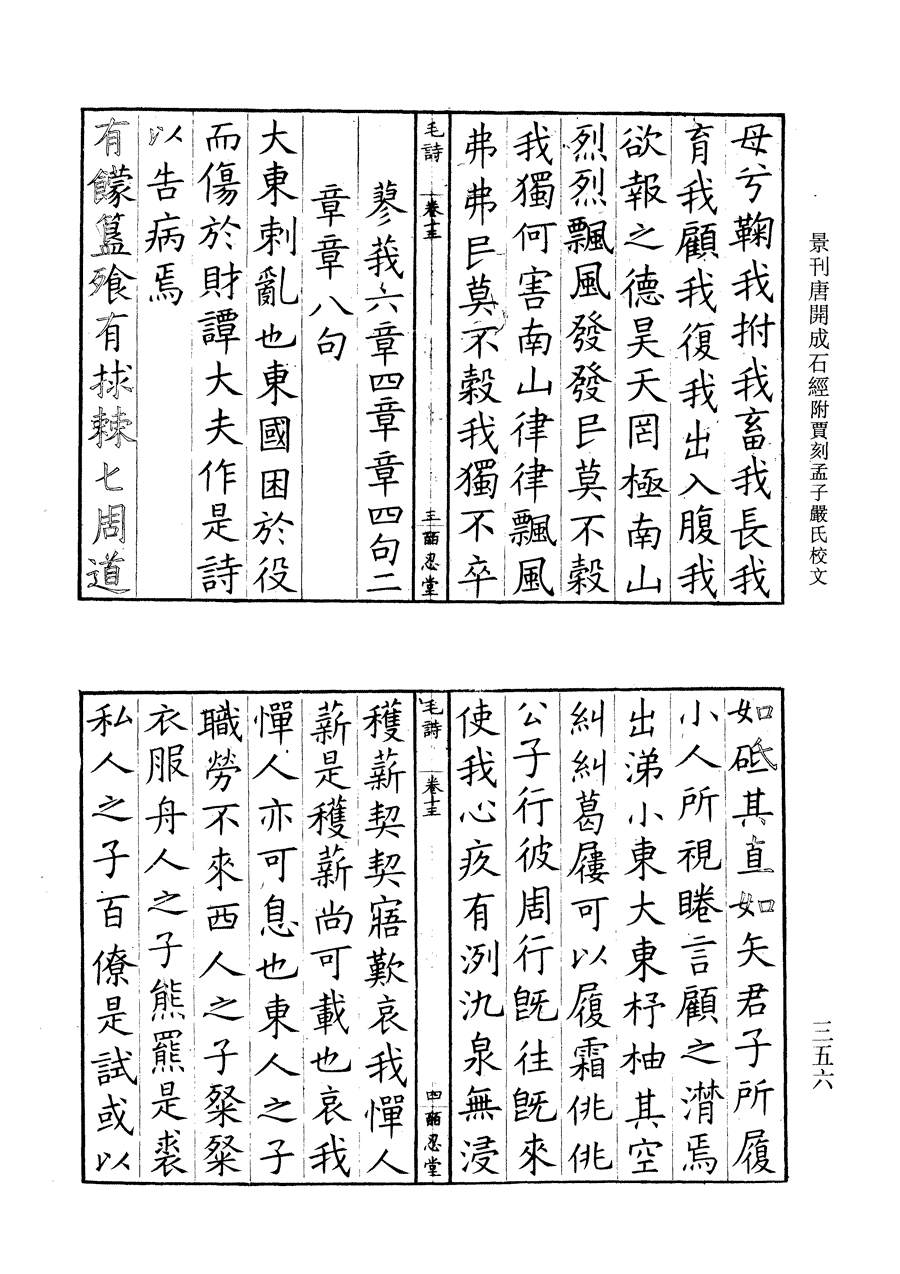 景刊唐開成石經附賈刻孟子嚴氏校文
母兮鞠我拊我畜我長我
育我顧我復我出入腹我
欲報之德昊天罔極南山
烈烈飄風發發民莫不穀
我獨何害南山律律飄風
弗弗民莫不穀我獨不卒
毛詩 卷十三 三 酉忍堂
蓼莪六章四章章四句二
章章八句
大東刺亂也東國困於役
而傷於財譚大夫作是詩
以告病焉
有饛簋飧有捄棘匕周道
如砥其直如矢君子所履
小人所視睠言顧之潸焉
出涕小東大東杼柚其空
糾糾葛屨可以履霜佻佻
公子行彼周行既往既來
使我心疚有洌氿泉無浸
毛詩 卷十三 四 酉忍堂
穫薪契契寤歎哀我憚人
薪是穫薪尚可載也哀我
憚人亦可息也東人之子
職勞不來西人之子粲粲
衣服舟人之子熊羆是裘
私人之子百僚是試或以
三五六